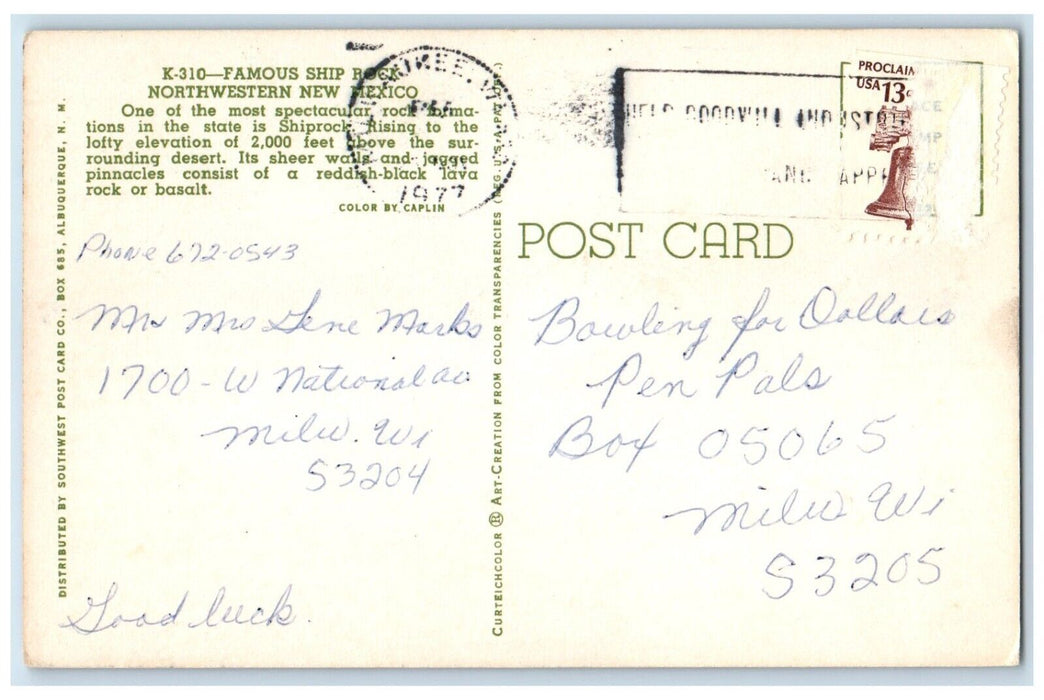 K-310—FAMOUS SHIP ROCK,
NORTHWESTERN NEW MEXICO
One of the most spectacular rock forma-
tions in the state is Shiprock. Rising to the
lofty elevation of 2,000 feet above the sur-
rounding desert. Its sheer walls and jagged
pinnacles consist of a reddish-black lava
rock or basalt.
COLOR BY CAPLIN
DISTRIBUTED BY SOUTHWEST POST CARD CO., BOX 685, ALBUQUERQUE, N. M.
Phone 672-0543
Mr Mrs Gene Marks
1700-W National av
Milw. Wi
53204
Good luck.
CURTEICHCOLOR ® ART-CREATION FROM COLOR TRANSPARENCIES (REG. U.S.A. PAT. OFF.)
1977
HELP GOODWILL INDUSTRIES
PROCLAIM
USA 13c
POST CARD
Bowling for Dollars
Pen Pals
Box 05065
Milw Wi
53205